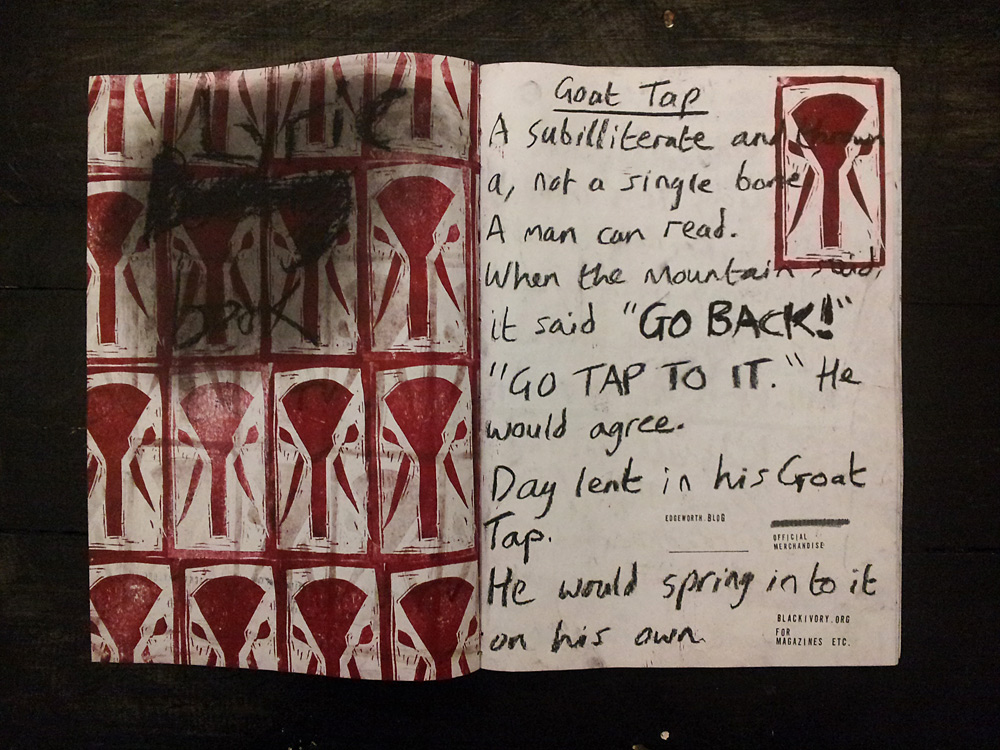 Lyric
book
Goat Tap
A subilliterate and thrown
a, not a single bone
A man can read.
When the mountain said,
it said "GO BACK!"
"GO TAP TO IT." He
would agree.
Day lent in his Goat
Tap.
He would spring in to it
on his own.
EDGEWORTH.BLOG
OFFICIAL
MERCHANDISE
BLACKIVORY.ORG
FOR
MAGAZINES ETC.